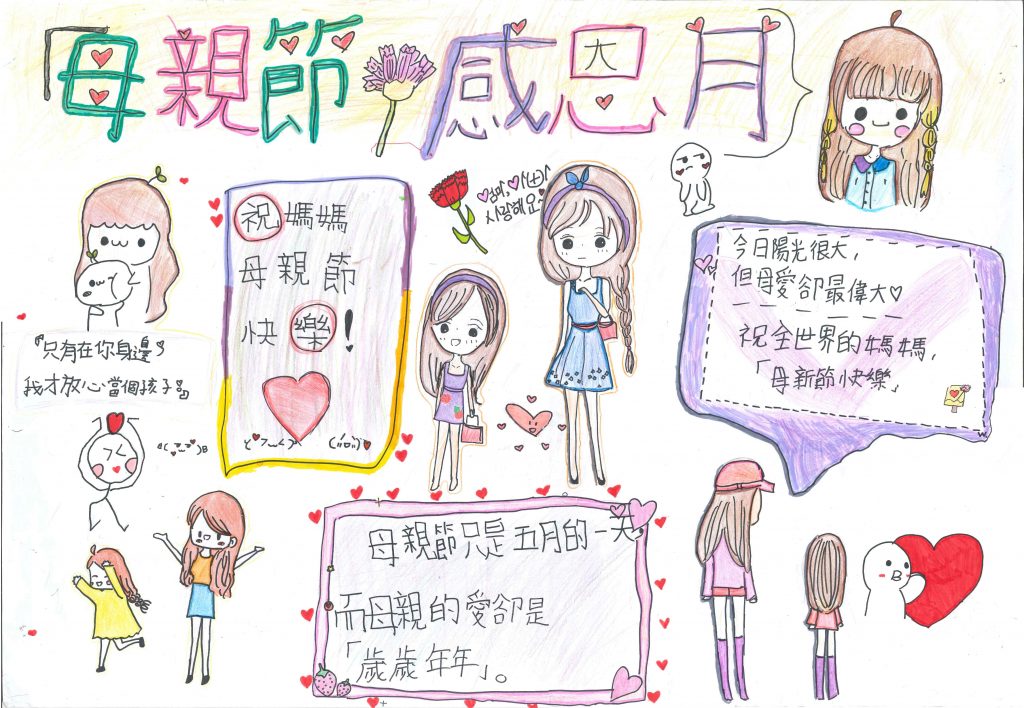 「母親節感恩月
엄마,
사랑해요~
祝媽媽
母親節
快樂!
今日陽光很大,
但母愛卻最偉大♡
祝全世界的媽媽,
「母新節快樂」
『只有在你身邊,
我才放心當個孩子』
母親節只是五月的一天
而母親的愛卻是
「歲歲年年」。